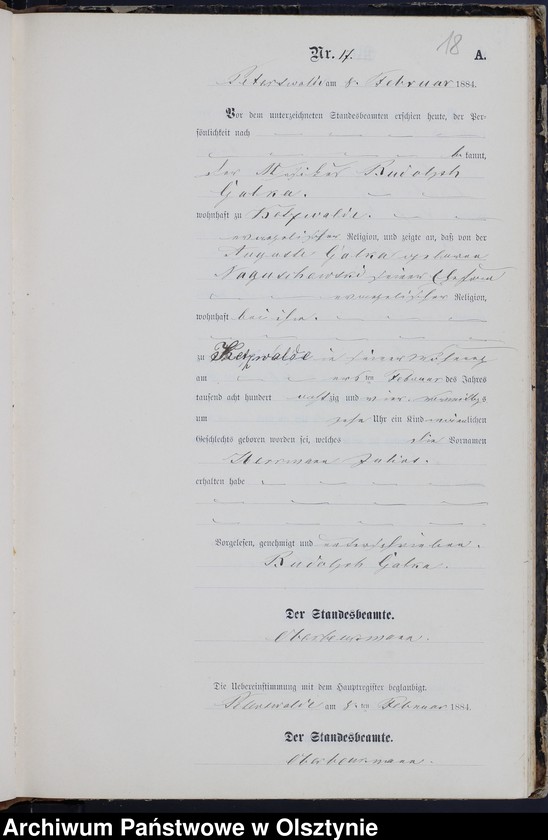 18
Nr. 17. A.
Peterswalde am 8. Februar 1884.
Vor dem unterzeichneten Standesbeamten erschien heute, der Per-
sönlichkeit nach
kannt,
der Rudolph
Galka.
wohnhaft zu
evangelischer Religion, und zeigte an, daß von der
Auguste Galka geborenen
seiner Ehefrau
evangelischer Religion,
wohnhaft bei ihm.
zu in seiner Wohnung
am ten Februar des Jahres
tausend acht hundert achtzig und vier Vormittags
um zehn Uhr ein Kind männlichen
Geschlechts geboren worden sei, welches die Vornamen
Herrmann Julius.
erhalten habe
Vorgelesen, genehmigt und unterschrieben.
Rudolph Galka.
Der Standesbeamte.
Die Uebereinstimmung mit dem Hauptregister beglaubigt.
Peterswalde am 8. ten Februar 1884.
Der Standesbeamte.
Archiwum Państwowe w Olsztynie